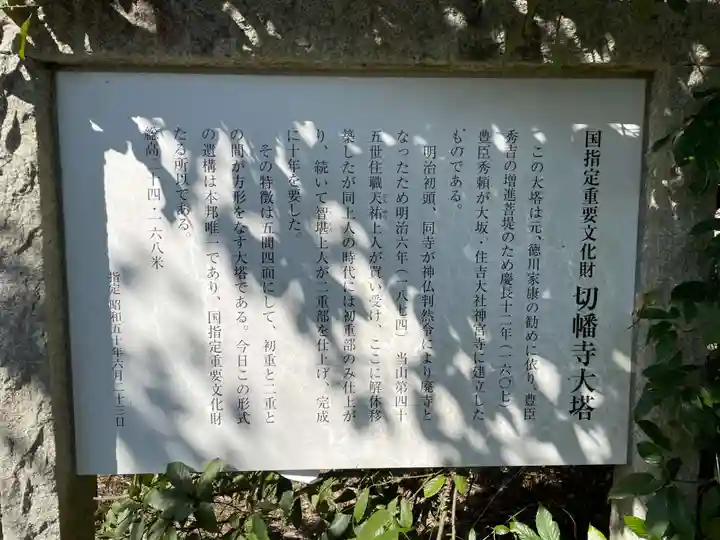 国指定重要文化財 切幡寺大塔
この大塔は元、徳川家康の勧めに依り、豊臣
秀吉の増進菩提のため慶長十二年(一六〇七)
豊臣秀頼が大坂・住吉大社神宮寺に建立した
ものである。
明治初頭、同寺が神仏判然令により廃寺と
なったため明治六年(一八七四)当山第四十
五世住職天祐上人が買い受け、ここに解体移
築したが同上人の時代には初重部のみ仕上が
り、続いて智堪上人が二重部を仕上げ、完成
に十年を要した。
その特徴は五間四面にして、初重と二重と
の間が方形をなす大塔である。今日この形式
の遺構は本邦唯一であり、国指定重要文化財
たる所以である。
総高二十四・二六八米
指定 昭和五十年六月二十三日